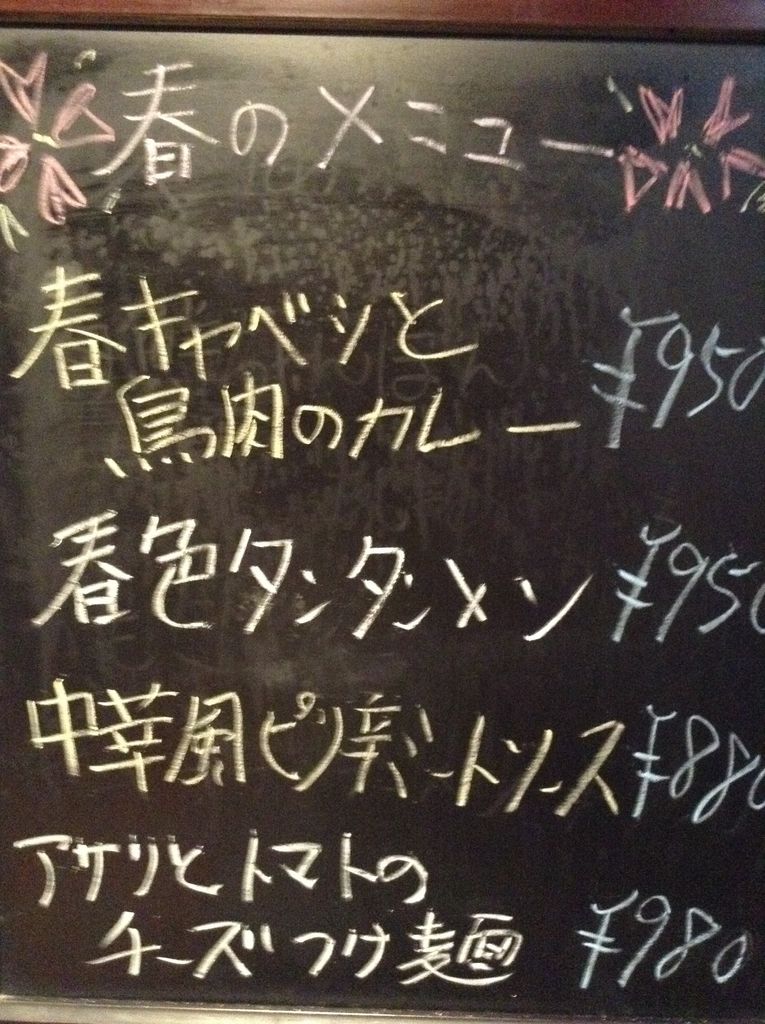 春のメニュー
春キャベツと ¥950
鳥肉のカレー
春色タンタンメン ¥950
中華風ピリ辛ミートソース ¥880
アサリとトマトの
チーズつけ麺 ¥980